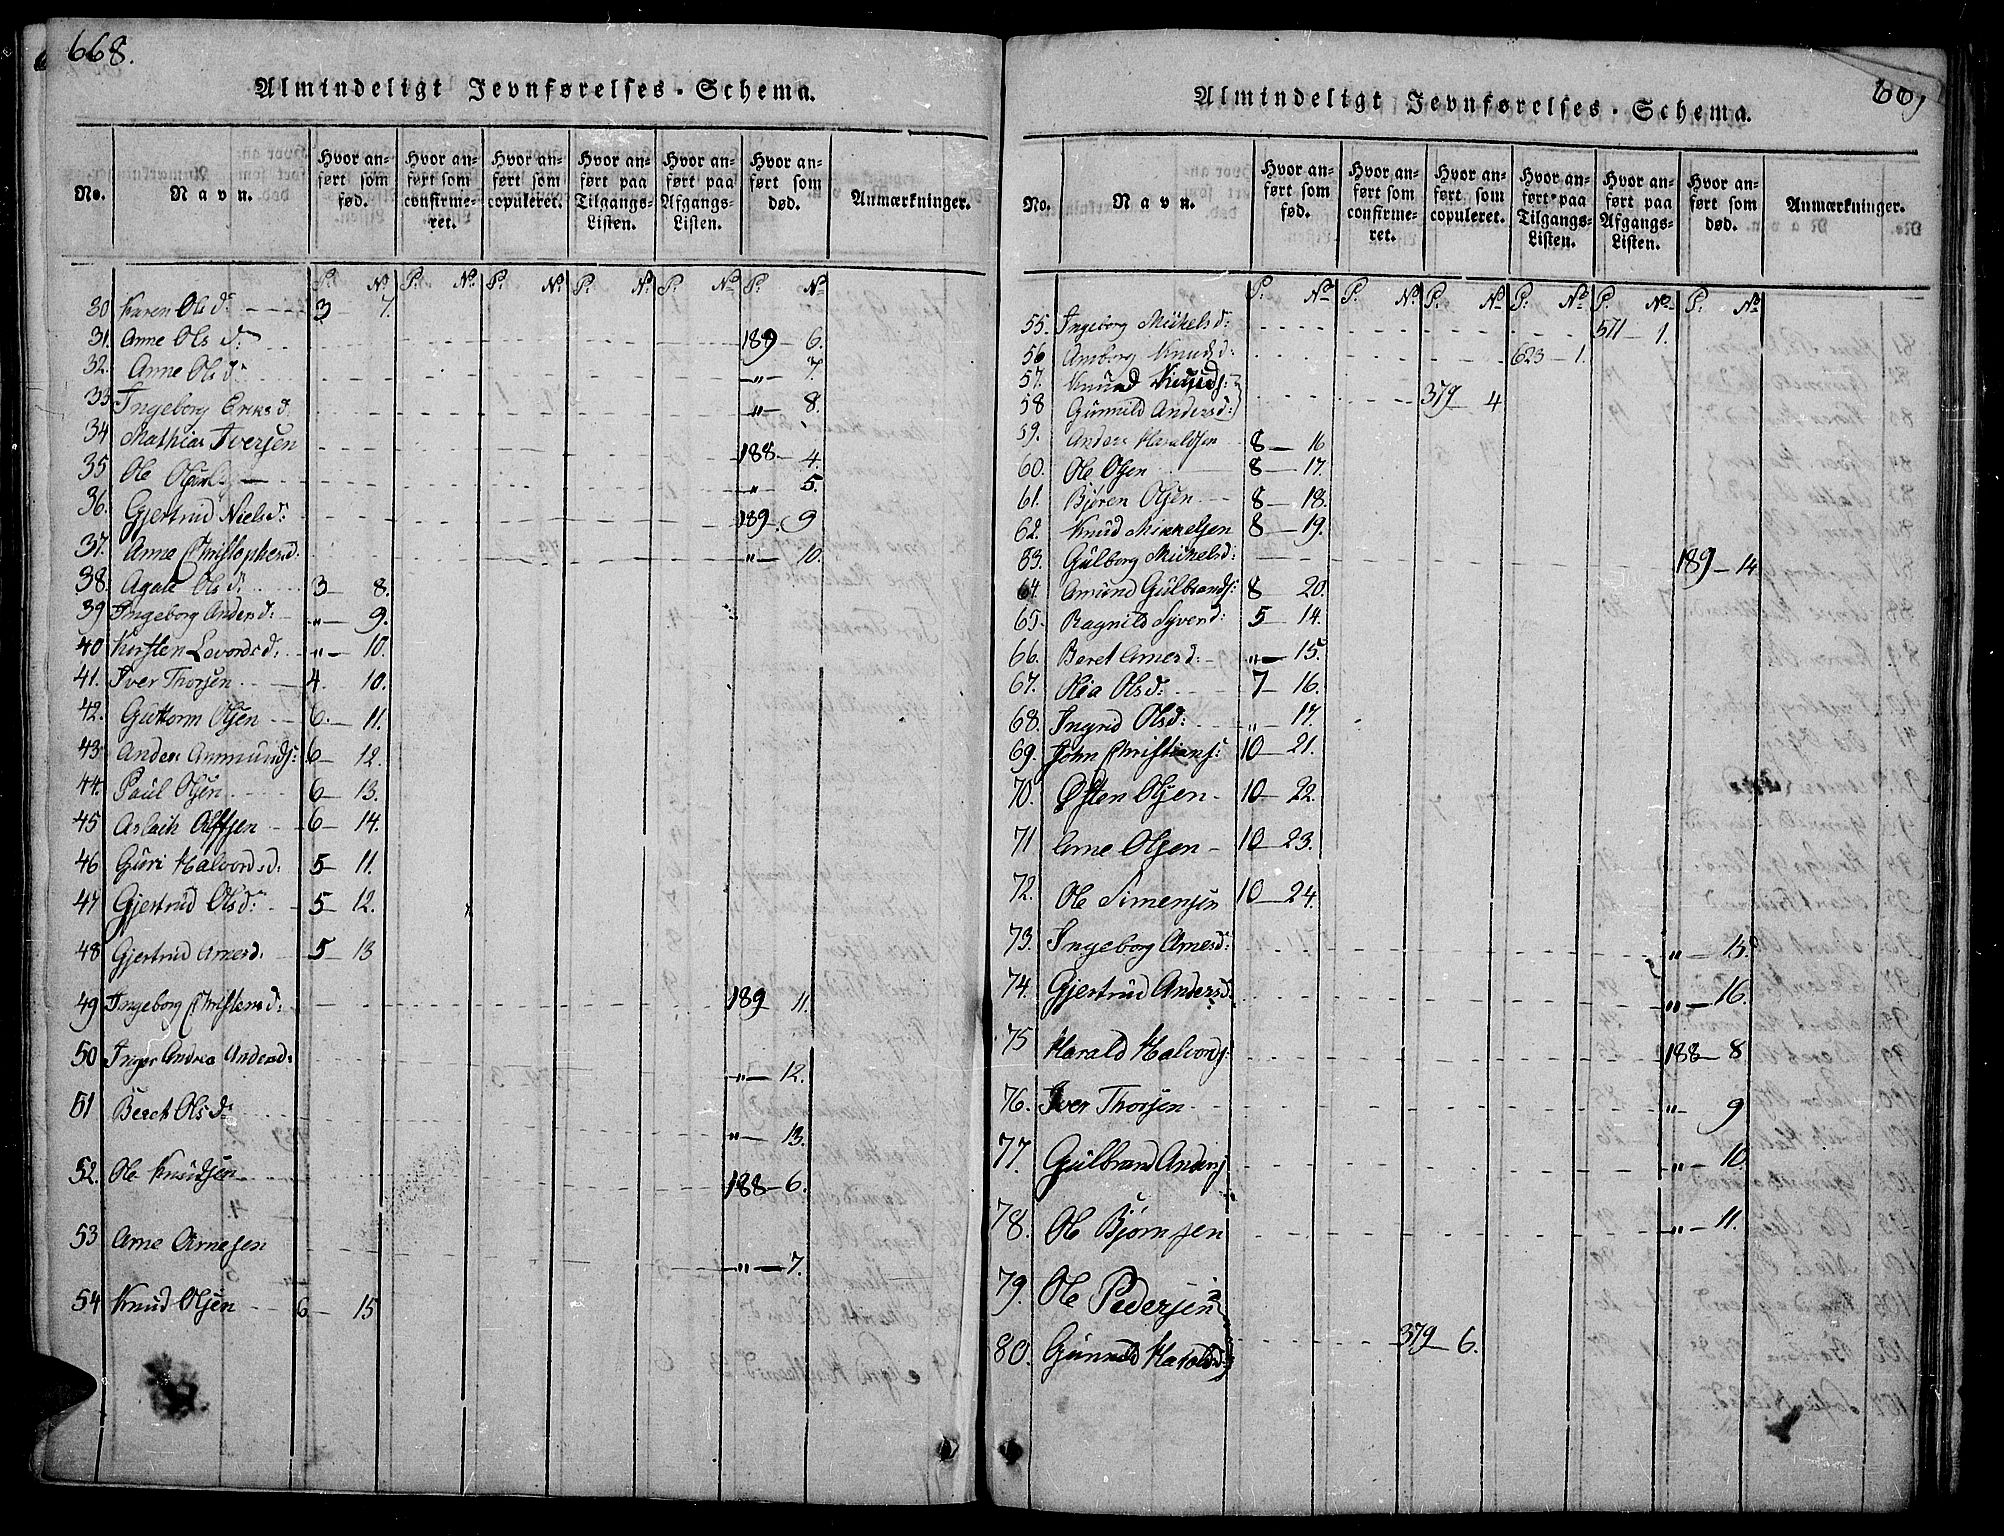 668.
Almindeligt Jevnførelses-Schema.
No. Navn. Hvor anført som fød. Hvor anført som confirmeret. Hvor anført som copuleret. Hvor anført paa Tilgangs-Listen. Hvor anført paa Afgangs-Listen. Hvor anført som død. Anmærkninger.
P. No P. No P. No P. No P. No P. No
30 Karen Olsd: 3 7.
31. Anne Olsd: 189 6.
32. Anne Olsd: „ 7.
33 Ingeborg Eriksd. „ 8.
34 Mathias Iversen 188 4.
35 Ole „ 5.
36. Gjertrud Nielsd: 189. 9
37. Anne Christophersd: „ 10.
38. Agate Olsd: 3 8.
39 Ingeborg Andersd: „ 9.
40 Kirsten Lovordsd: „ 10.
41. Iver Thorsen 4. 10.
42. Guttorm Olsen 6. 11.
43. Anders Anmunds: 6 12.
44. Paul Olsen 6 13.
45 Aslach Olssen 6 14.
46 Guri Halvordsd: 5 11.
47 Gjertrud Olsd: 5 12.
48 Gjertrud Arnesd. 5 13
49 Ingeborg Christensd: 189 11.
50 Inger Andrea Andersd: „ 12.
51 Bereth Olsd: „ 13.
52. Ole Knudsen 188 6.
53 Arne Arnesen „ 7.
54 Knud Olsen 6 15
669
Almindeligt Jevnførelses-Schema.
No. Navn. Hvor anført som fød. Hvor anført som confirmeret. Hvor anført som copuleret. Hvor anført paa Tilgangs-Listen. Hvor anført paa Afgangs-Listen. Hvor anført som død. Anmærkninger.
P. No P. No P. No P. No P. No P. No
55. Ingeborg Mickelsd: 571 1.
56 Amborg Knudsd: 623 1.
57. Knud Knuds:
58 Gunnild Andersd: 379 4
59. Anders Haraldsen 8 16
60. Ole Olsen 8 17.
61. Bjøren Olsen 8 18.
62. Knud Mikkelsen 8 19.
63. Gulborg Mickelsd: 189 14
64. Amund Gulbrands: 8 20.
65. Ragnild Syversd: 5 14.
66. Beret Arnesd: „ 15.
67. Kia Olsd: 7 16.
68. Ingrid Olsd: „ 17.
69. John Christians: 10 21.
70. Østen Olsen 10 22.
71 Arne Olsen 10 23.
72. Ole Simensen 10 24.
73. Ingeborg Arnesd: „ 15.
74. Gjertrud Andersd: „ 16.
75 Harald Halvords: 188 8
76. Iver Thorsen „ 9
77. Gulbrand Anders: „ 10.
78. Ole Bjørnsen „ 11.
79. Ole Pedersen
80. Gunnild Haroldsd: 379 6.